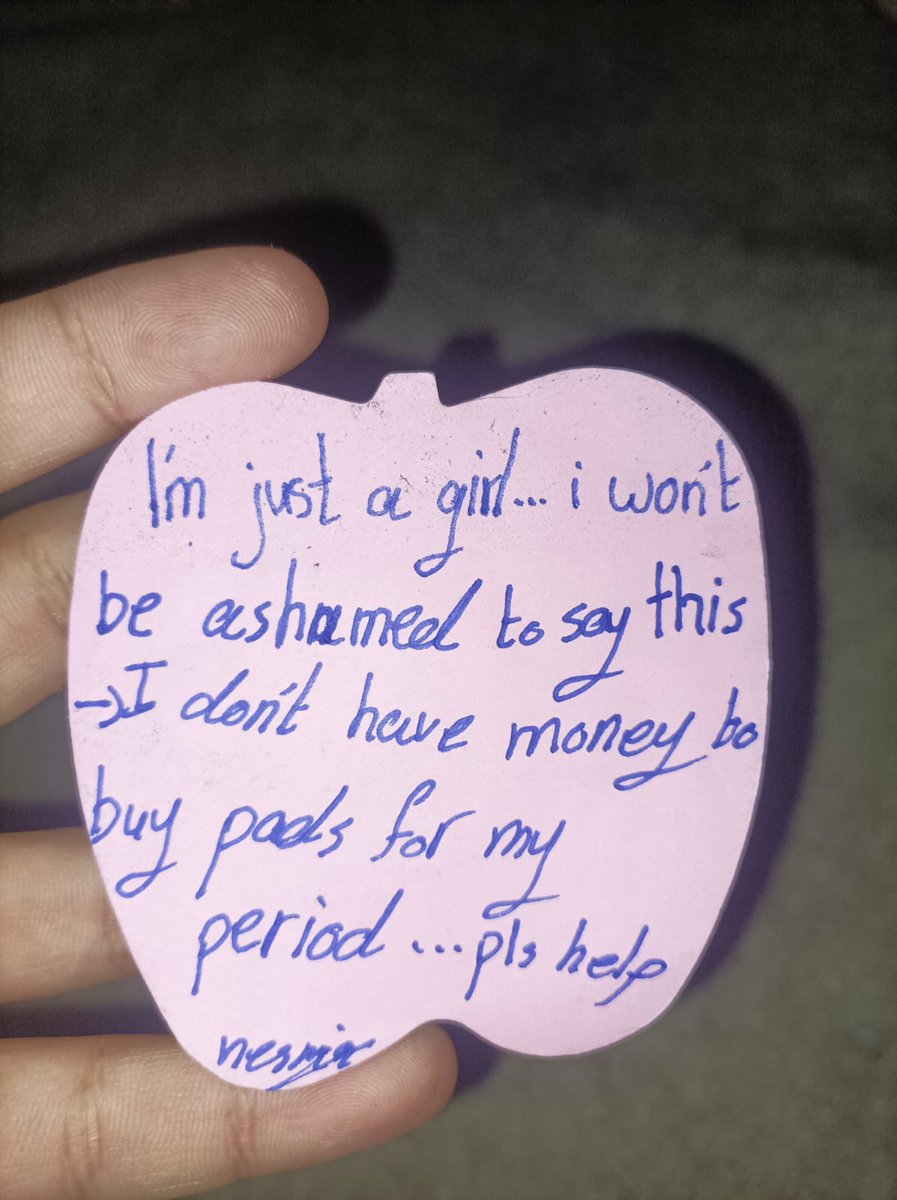 I'm just a girl... i won't
be ashamed to say this
→ I don't have money to
buy pads for my
period ... pls help
nesmia